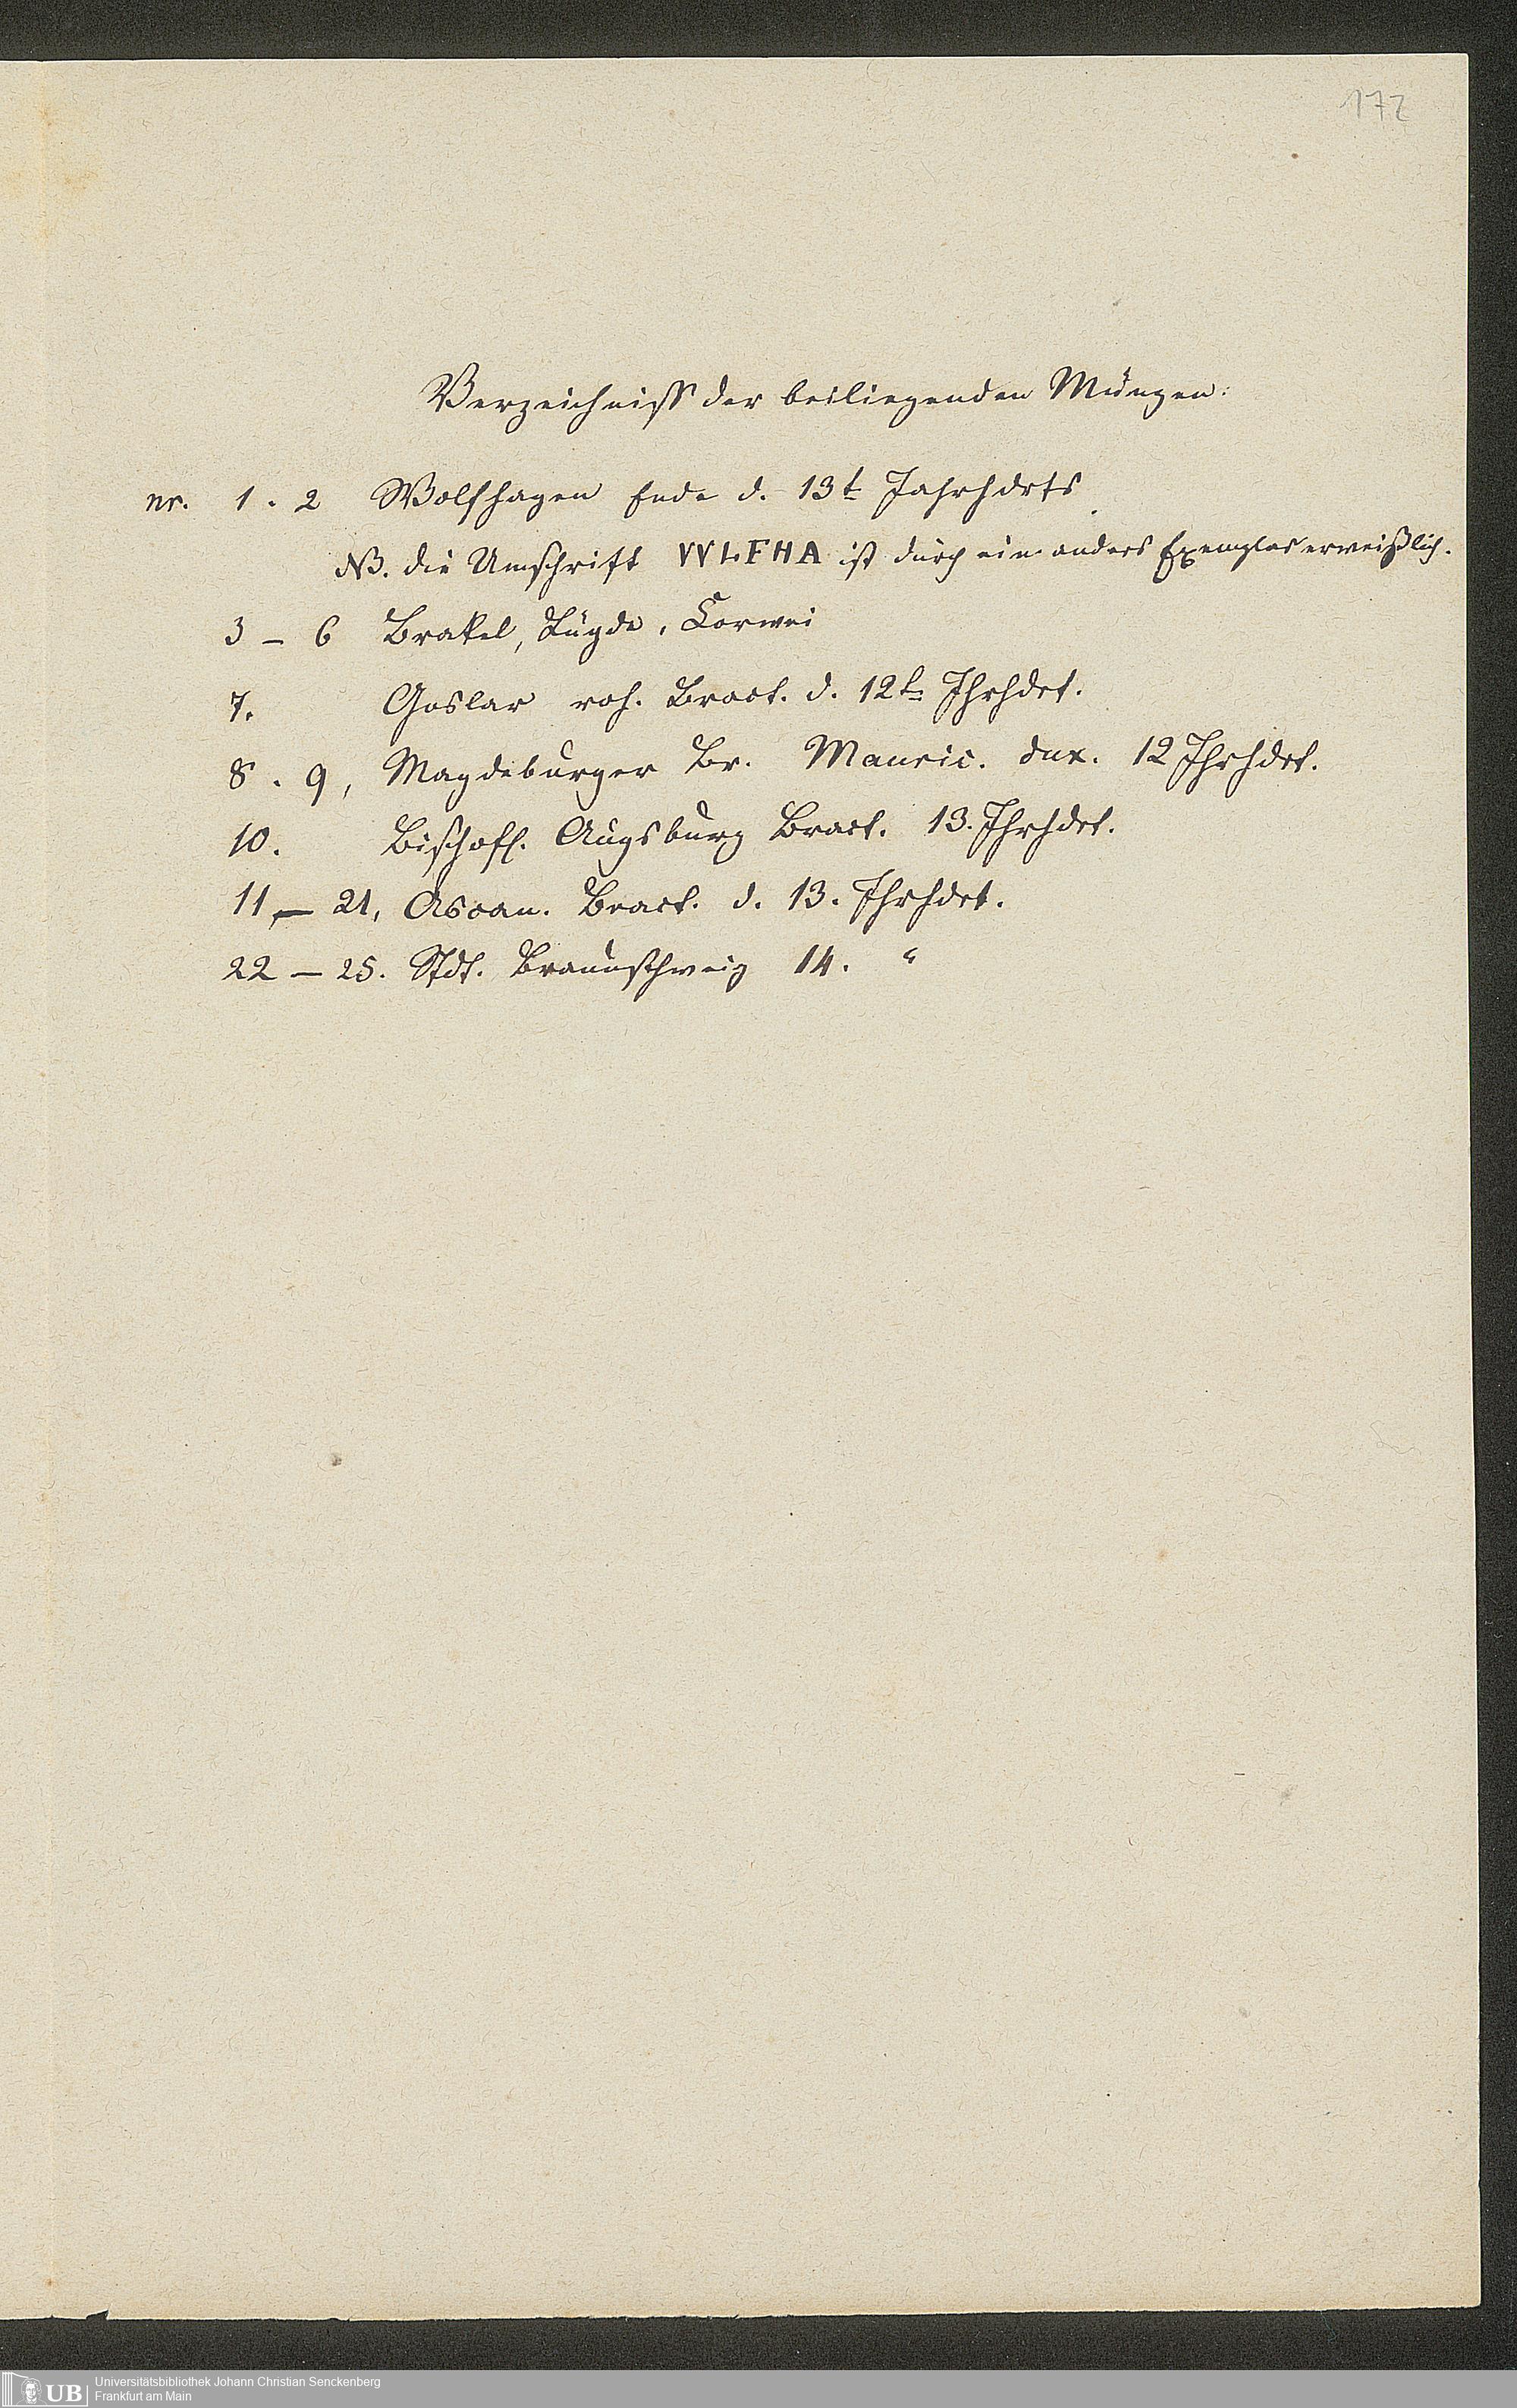 172
Verzeichniss der beiliegenden Münzen:
nr. 1. 2 Wolfhagen Ende d. 13t Jahrhdrts
NB. die Umschrift WLFHA ist durch ein anders Exemplar erweißlich.
3 – 6 Brakel, Lügde, Corwei
7. Goslar roh. Bract. d. 12t Jhrhdrt.
8. 9, Magdeburger Br. Mauric. dux. 12 Jhrhdrt.
10. Bischöfl. Augsburg Bract. 13. Jhrhdrt.
11 – 21, Ascan. Bract. d. 13. Jhrhdrt.
22 – 25. Stdt. Braunschweig 14. "
UB Universitätsbibliothek Johann Christian Senckenberg
Frankfurt am Main